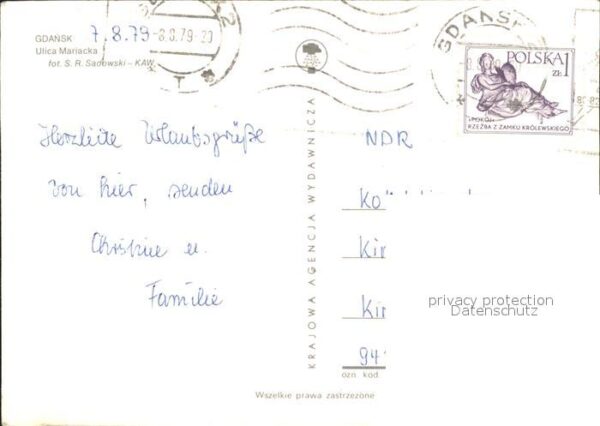 GDAŃSK
Ulica Mariacka
fot. S. R. Sadowski - KAW
7.8.79
-8.8.79-20
GDAŃSK
POLSKA 1
ZŁ
"POKÓJ"
RZEŹBA Z ZAMKU KRÓLEWSKIEGO
Herzliche Urlaubsgrüße
von hier, senden
Christine u.
Familie
KRAJOWA AGENCJA WYDAWNICZA
NDR
Kö
Kir
Kir
94
ozn kod
privacy protection
Datenschutz
Wszelkie prawa zastrzeżone